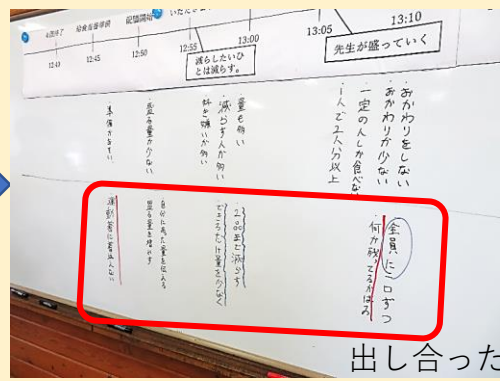 給食準備
配膳開始
いただき
12:40
12:45
12:50
12:55
13:00
13:05
13:10
減らしたいひ
とは減らす。
先生が盛っていく
・おかわりをしない
・おかわりが少ない
・一定の人しか食べない
・1人で2人分以上
・量も多い
・減らす人が多い
・好き嫌いが多い
・盛る量が少ない
・準備がおそい
全員に一口ずつ
何が残ってるかはる
できるだけ量を少なく
自分に合った量を伝える
盛る量を増やす
運動着に着替えない
出し合った